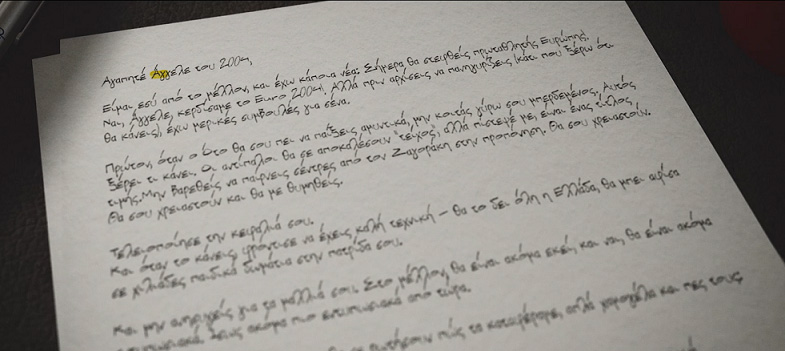 Αγαπητέ Άγγελε του 2004,
Είμαι εσύ από το μέλλον, και έχω κάποια νέα: Σήμερα θα στεφθείς πρωταθλητής Ευρώπης!
Ναι, Άγγελε, κερδίσαμε το Euro 2004! Αλλά πριν αρχίσεις να πανηγυρίζεις (κάτι που ξέρω ότι
θα κάνεις), έχω μερικές συμβουλές για σένα.
Πρώτον, όταν ο Ότο θα σου πει να παίξεις αμυντικά, μην κοιτάς γύρω σου μπερδεμένος. Αυτός
ξέρει τι κάνει. Οι αντίπαλοι θα σε αποκαλέσουν "τείχος", αλλά πίστεψέ με, είναι ένας τίτλος
τιμής. Μην βαρεθείς να παίρνεις σέντρες από τον Ζαγοράκη στην προπόνηση. Θα σου χρειαστούν.
Θα σου χρειαστούν και θα με θυμηθείς.
Τελειοποίησε την κεφαλιά σου.
Και όταν το κάνεις, φρόντισε να έχεις καλή τεχνική – θα το δει όλη η Ελλάδα, θα μπει αφίσα
σε χιλιάδες παιδικά δωμάτια στην πατρίδα σου.
Και μην ανησυχείς για τα μαλλιά σου. Στο μέλλον, θα είναι ακόμα εκεί, και ναι, θα είναι ακόμα
εντυπωσιακά. Ίσως ακόμα πιο εντυπωσιακά από τώρα.
πώς τα καταφέραμε, απλά χαμογέλα και πες τους